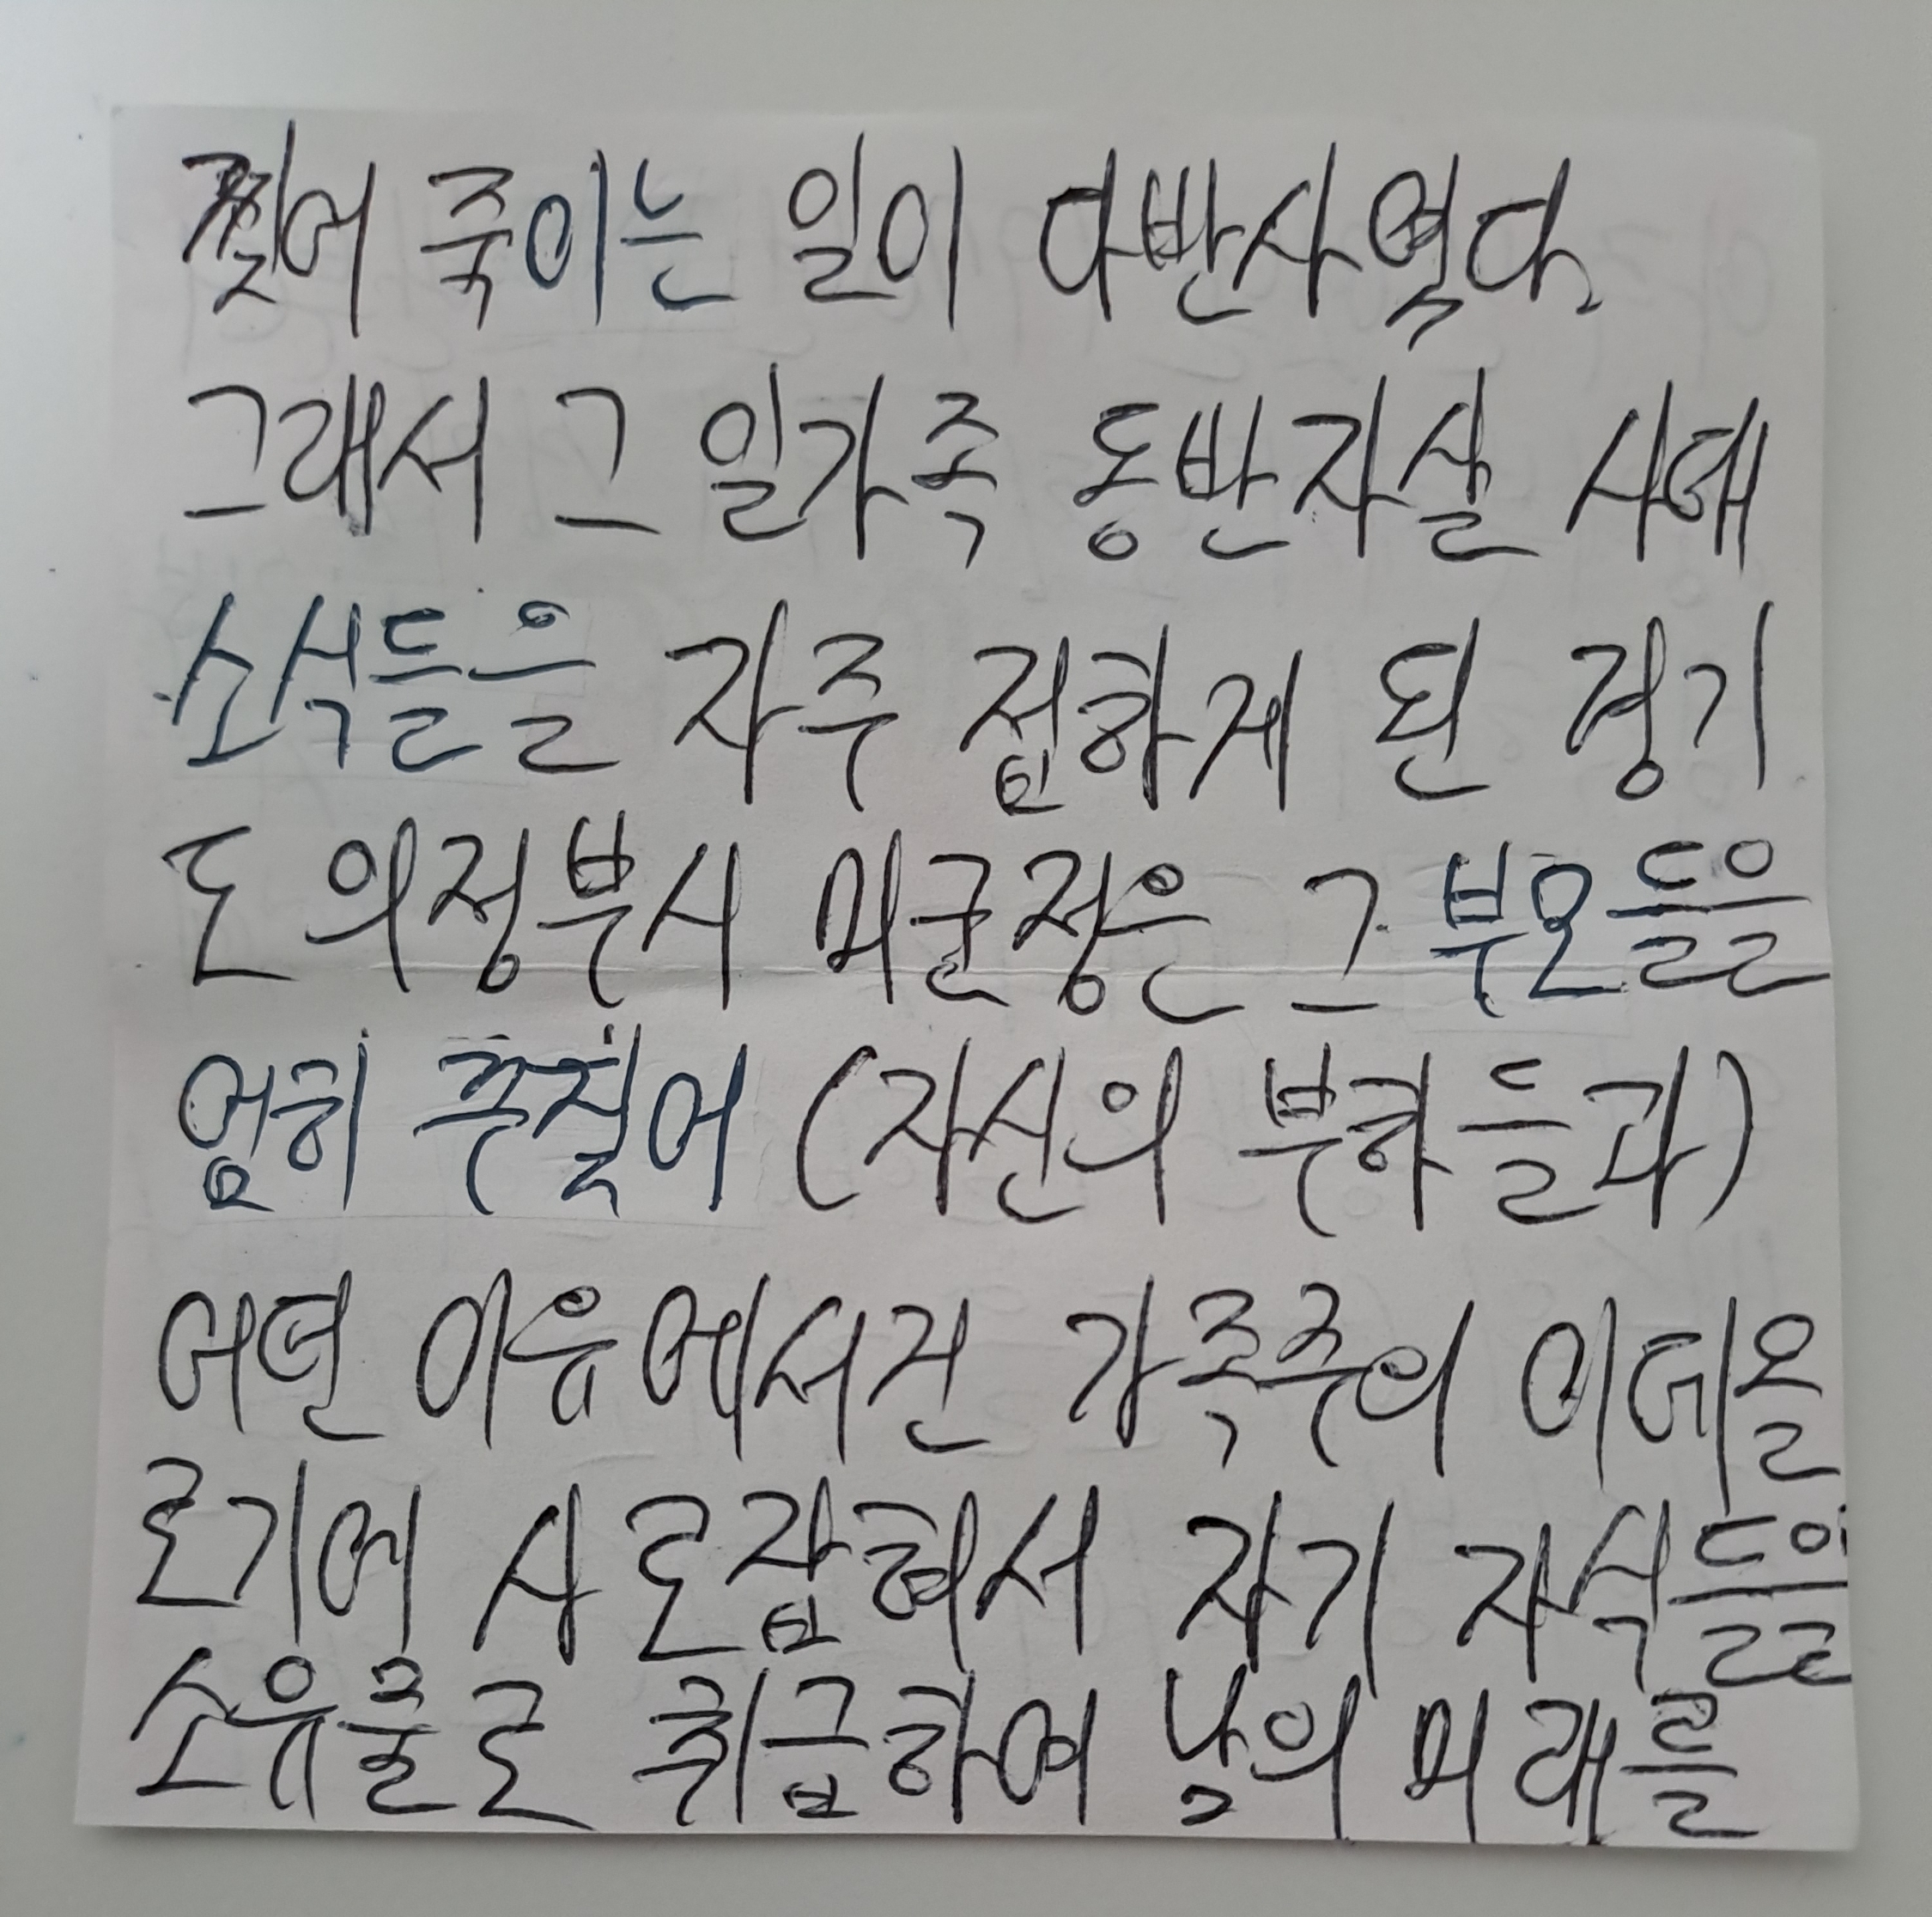 찢어 죽이는 일이 다반사였다.
그래서 그 일가족 동반자살 사태
소식들을 자주 접하게 된 경기
도 의정부시 미균정은 그 부모들을
엄히 꾸짖어 (자신의 부하들과)
어떤 이유에서건 가족주의 이데올
로기에 사로잡혀서 자기 자식들을
소유물로 취급하여 남의 미래를